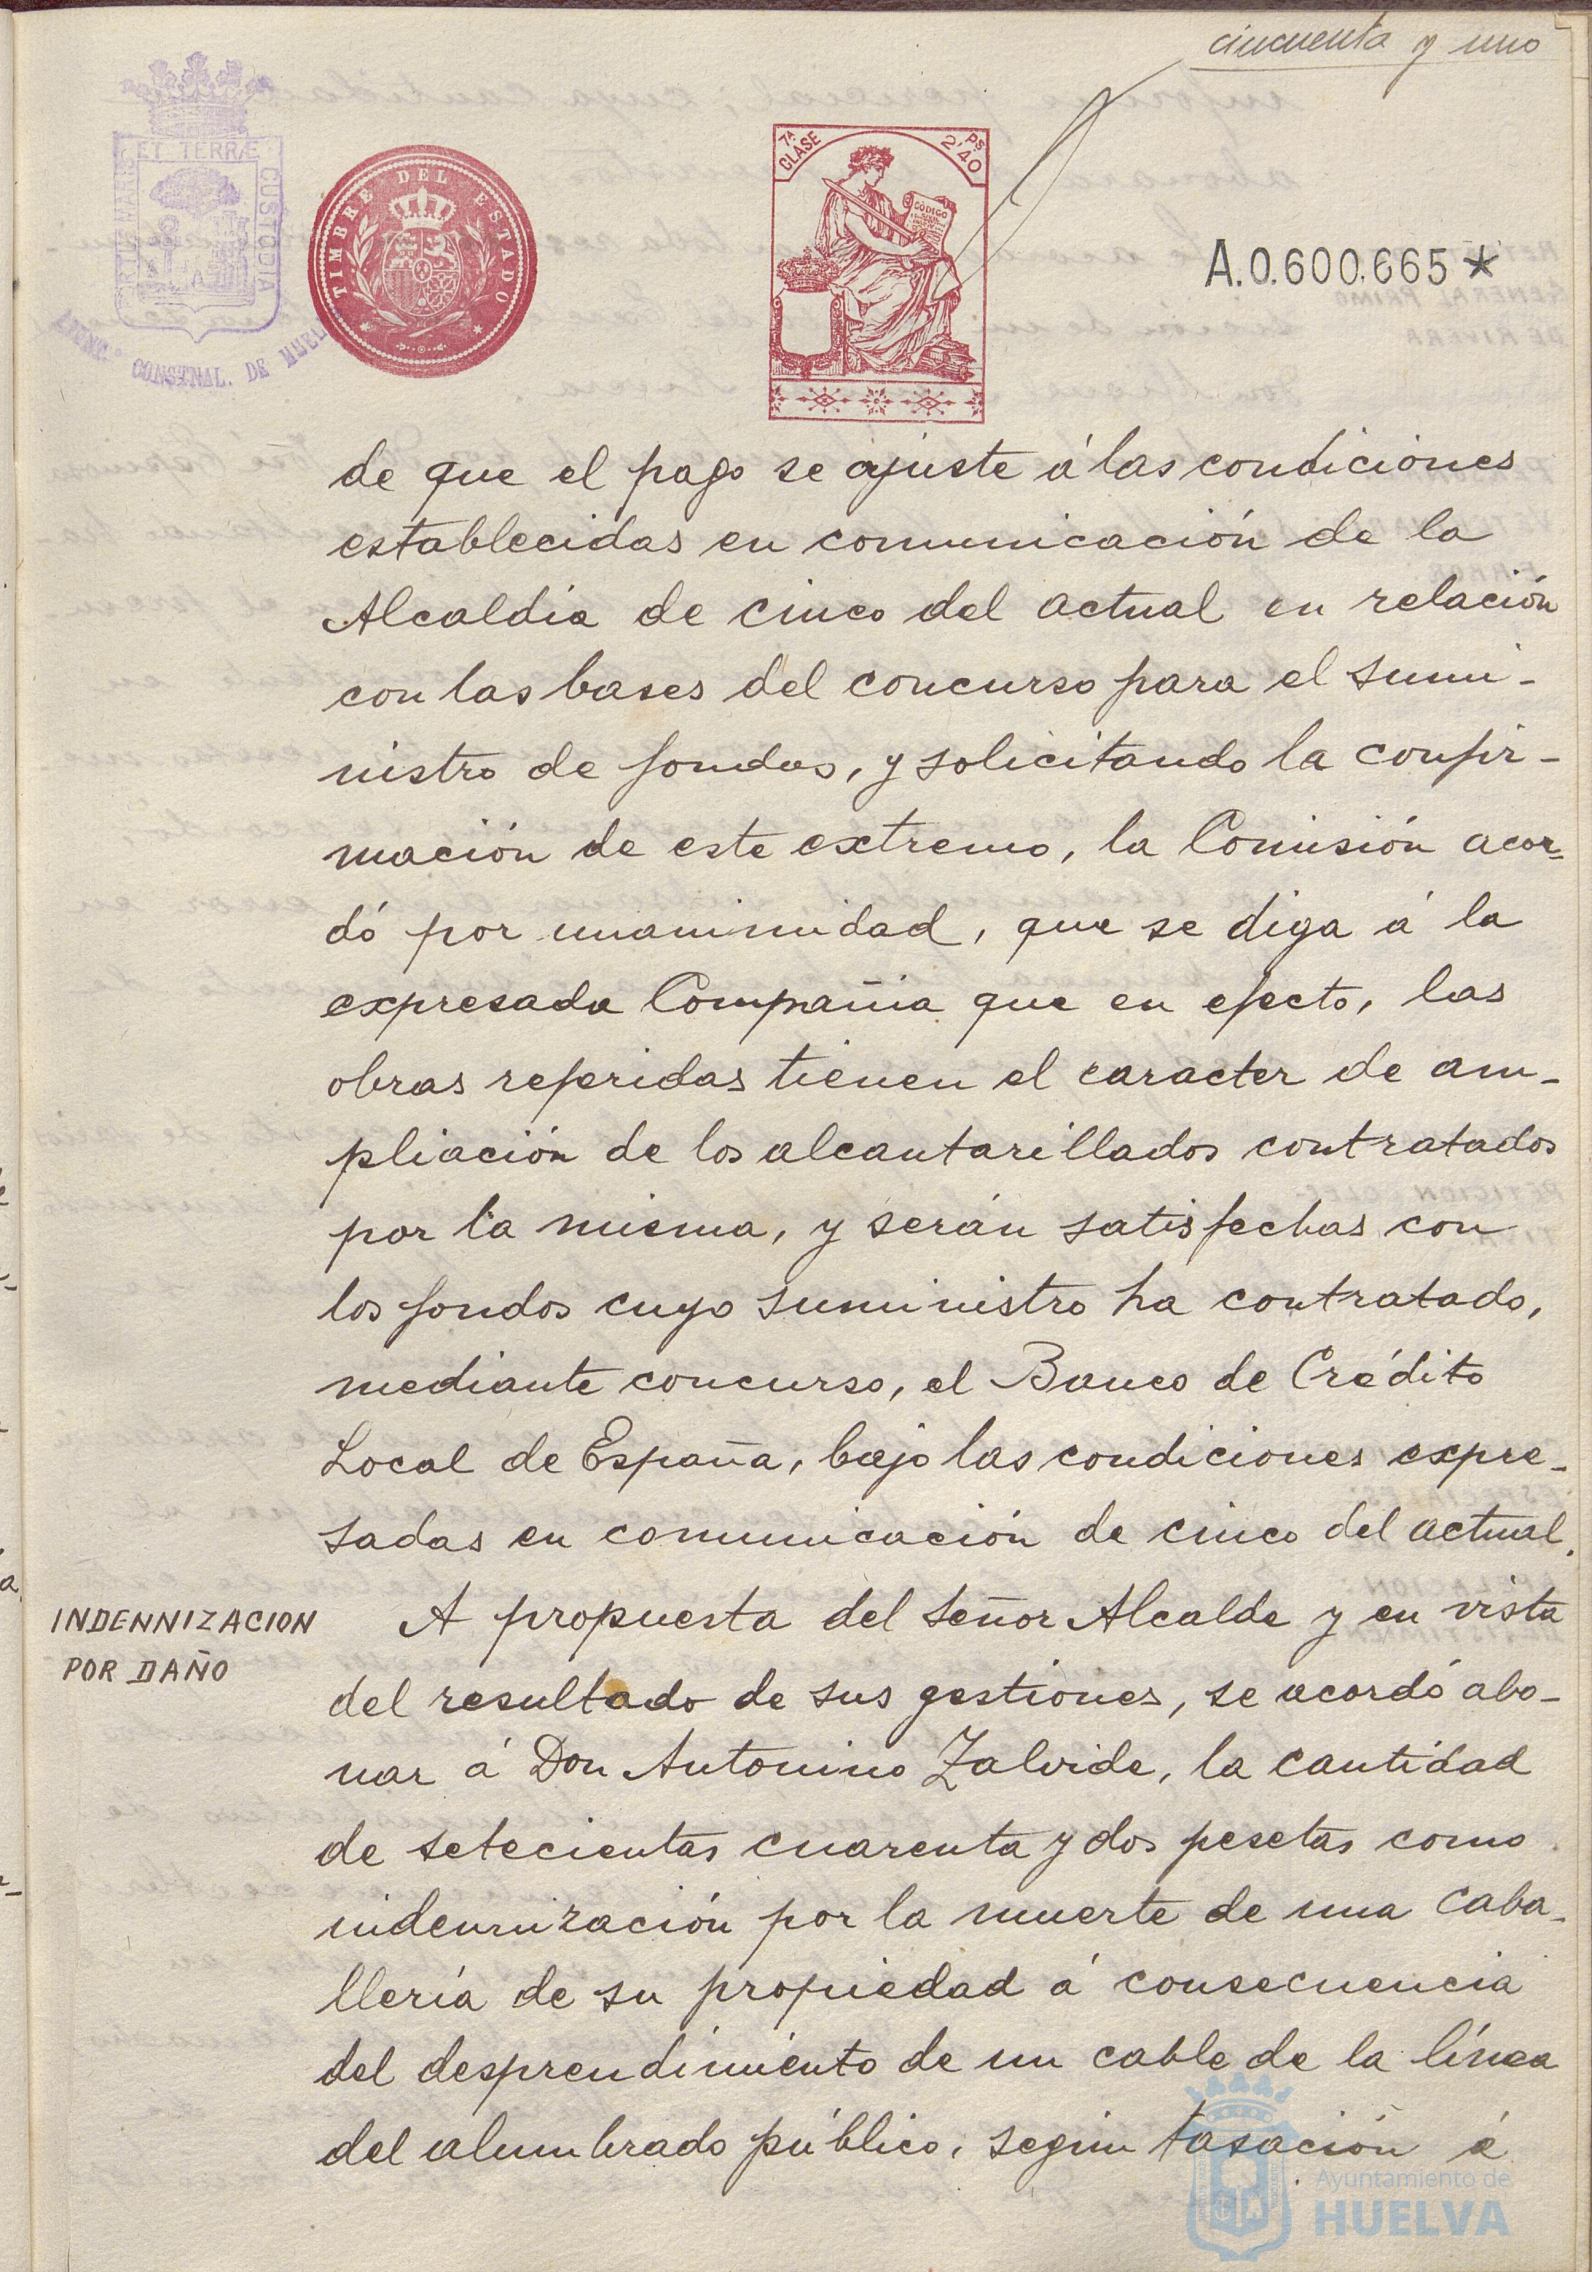 cincuenta y uno
ET TERRÆ
CUSTODIA
CONSTNAL. DE
TIMBRE DEL ESTADO
7ª CLASE
Ps 2'40
CÓDIGO
A.0.600.665*
de que el pago se ajuste á las condiciones
establecidas en comunicación de la
Alcaldía de cinco del actual en relación
con las bases del concurso para el sumi-
nistro de fondos, y solicitando la confir-
mación de este extremo, la Comisión acor-
dó por unanimidad, que se diga á la
expresada Compañia que en efecto, las
obras referidas tienen el caracter de am-
pliación de los alcantarillados contratados
por la misma, y serán satisfechas con
los fondos cuyo suministro ha contratado,
mediante concurso, el Banco de Crédito
Local de España, bajo las condiciones expre-
sadas en comunicación de cinco del actual.
INDENNIZACION
POR DAÑO
A propuesta del señor Alcalde y en vista
del resultado de sus gestiones, se acordó abo-
nar á Don Antonino Zalvide, la cantidad
de setecientas cuarenta y dos pesetas como
indemnización por la muerte de una caba-
llería de su propiedad á consecuencia
del desprendimiento de un cable de la línea
del alumbrado público, segun tasación é
Ayuntamiento de
HUELVA